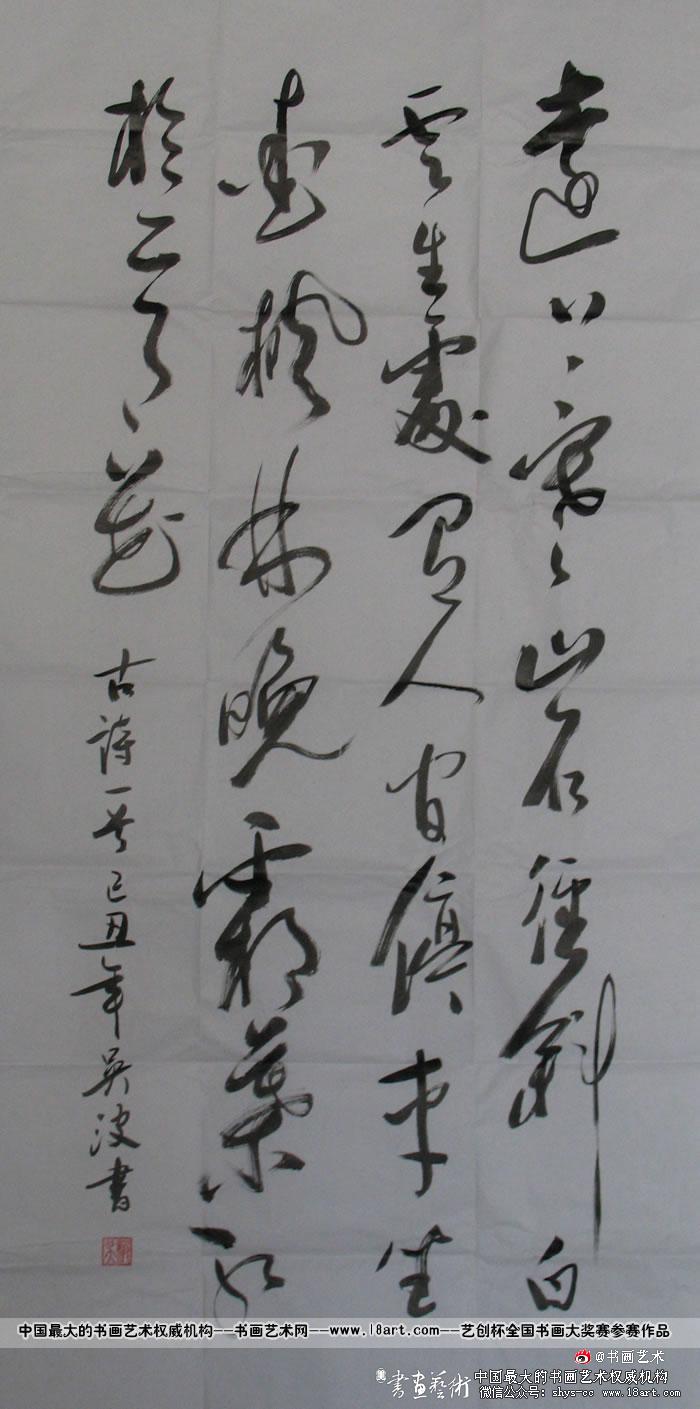 遠上寒山石徑斜白
云生處有人家停車坐
愛楓林晚霜葉紅
於二月花
古詩一首己丑年吴波書
中国最大的书画艺术权威机构---书画艺术网---www.18art.com---艺创杯全国书画大奖赛参赛作品
@书画艺术
書画藝術 中国最大的书画艺术权威机构
微信公众号：shys-cc www.18art.com